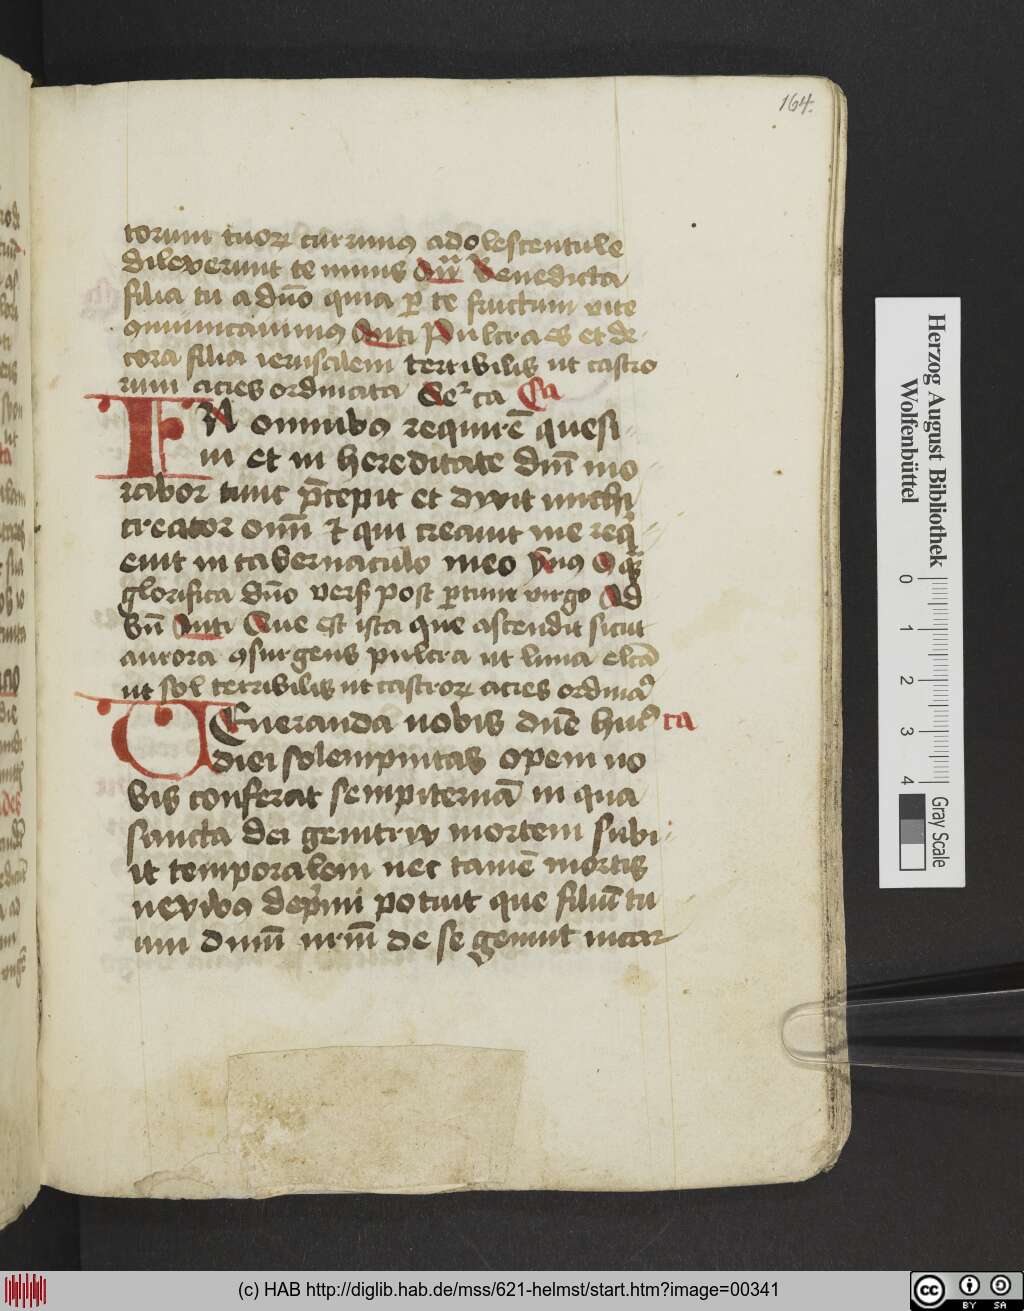 164.
torum tuoꝝ currimꝰ adolescentule
dilexerunt te nimis Añ Benedicta
filia tu a dño quia ꝑ te fructum vite
ꝯmunicauimꝰ Anti Pulcra es et de
cora filia ierusalem terribilis ut castro
rum acies ordinata Se ca
IN omnibꝰ requiē quesi
ui et in hereditate dñi mo
rabor tunc p̄cepit et dixit michi
creator oĩm ⁊ qui creauit me req
euit in tabernaculo meo ymꝰ O
glorifica dño versꝰ post partum virgo Ad
bñ Anti Que est ista que ascendit sicut
aurora ꝯsurgens pulcra ut luna elcā
ut sol terribilis ut castroꝝ acies ordinā
VEneranda nobis dñe huiꝰ ca
diei solempnitas opem no
bis conferat sempiternā in qua
sancta dei genitrix mortem subi
it temporalem nec tamē mortis
nexibꝰ depͥmi potuit que filiū tu
um dñum nrm̄ de se genuit incar
Herzog August Bibliothek
Wolfenbüttel
0 1 2 3 4
Gray Scale
(c) HAB http://diglib.hab.de/mss/621-helmst/start.htm?image=00341
cc BY SA